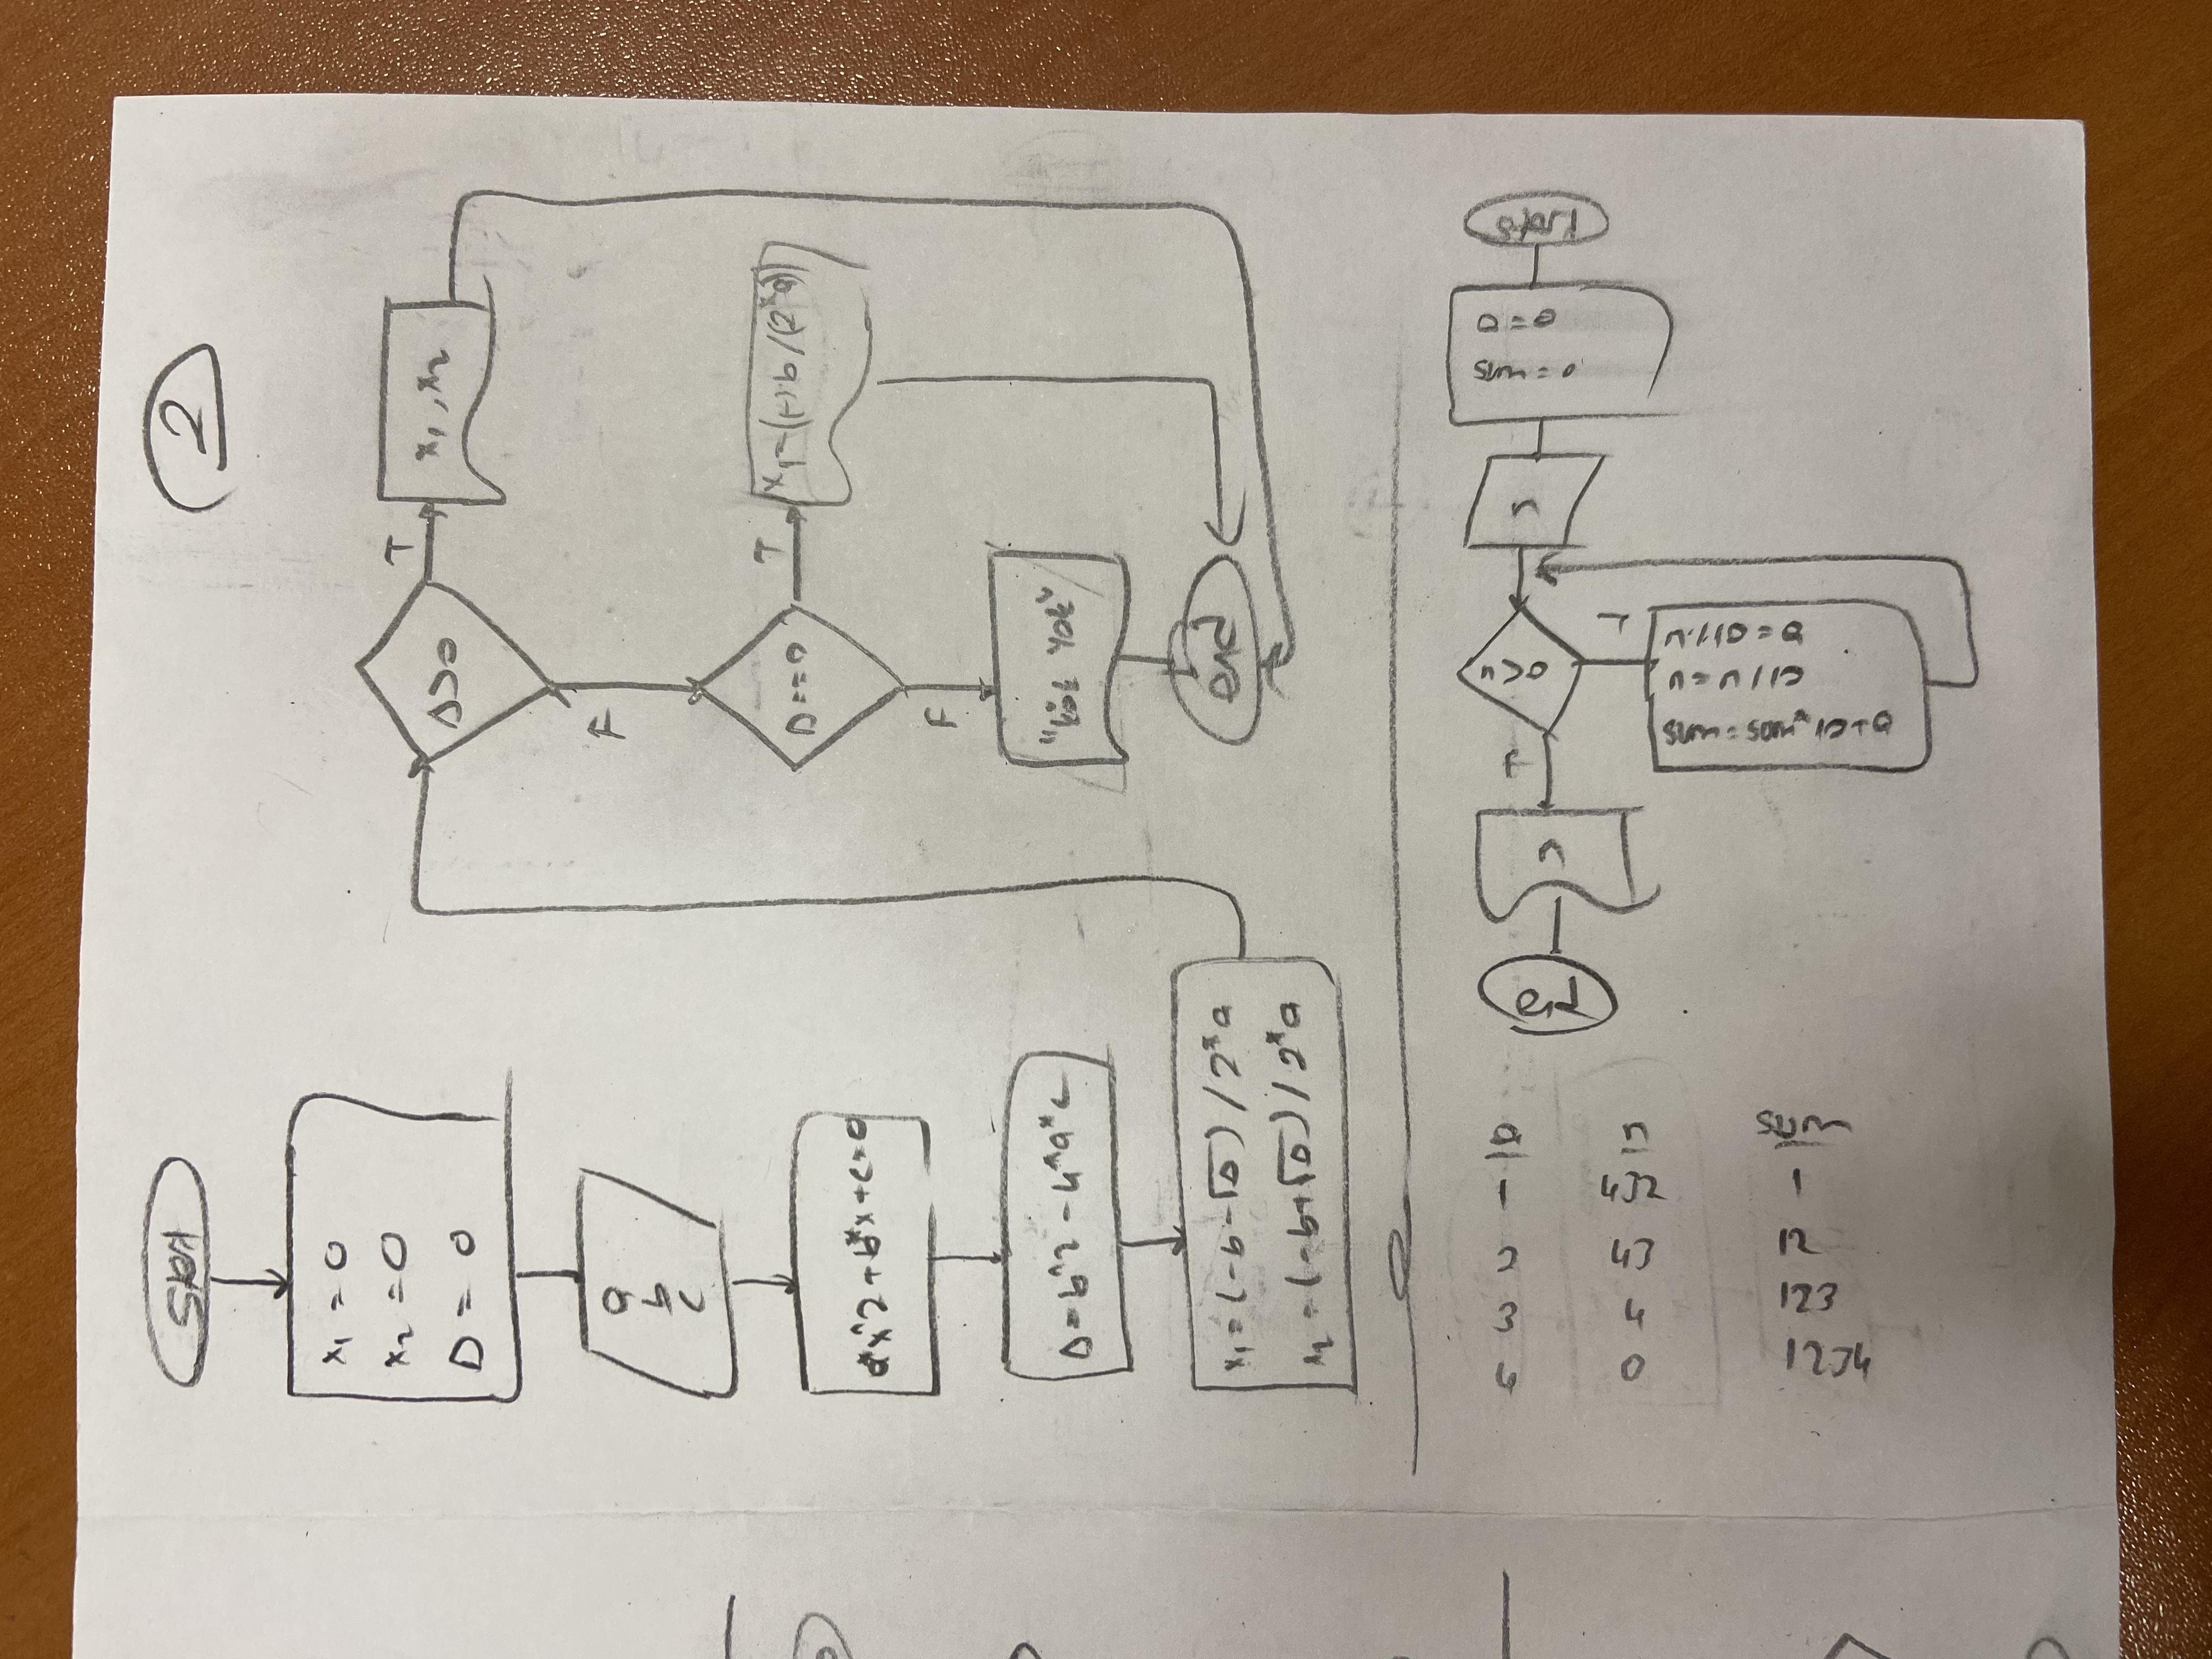 2
Start
x1 = 0
x2 = 0
D = 0
a
b
c
a*x^2+b*x+c=0
D=b^2-4*a*c
x1=(-b-√D)/2*a
x2=(-b+√D)/2*a
D>0
T
x1,x2
F
D==0
T
x1=(-)b/(2*a)
F
"kök yok"
end
start
a=0
sum=0
n
n>0
T
n%10=a
n=n/10
sum=sum*10+a
F
n
end
a n sum
1 432 1
2 43 12
3 4 123
4 0 1234